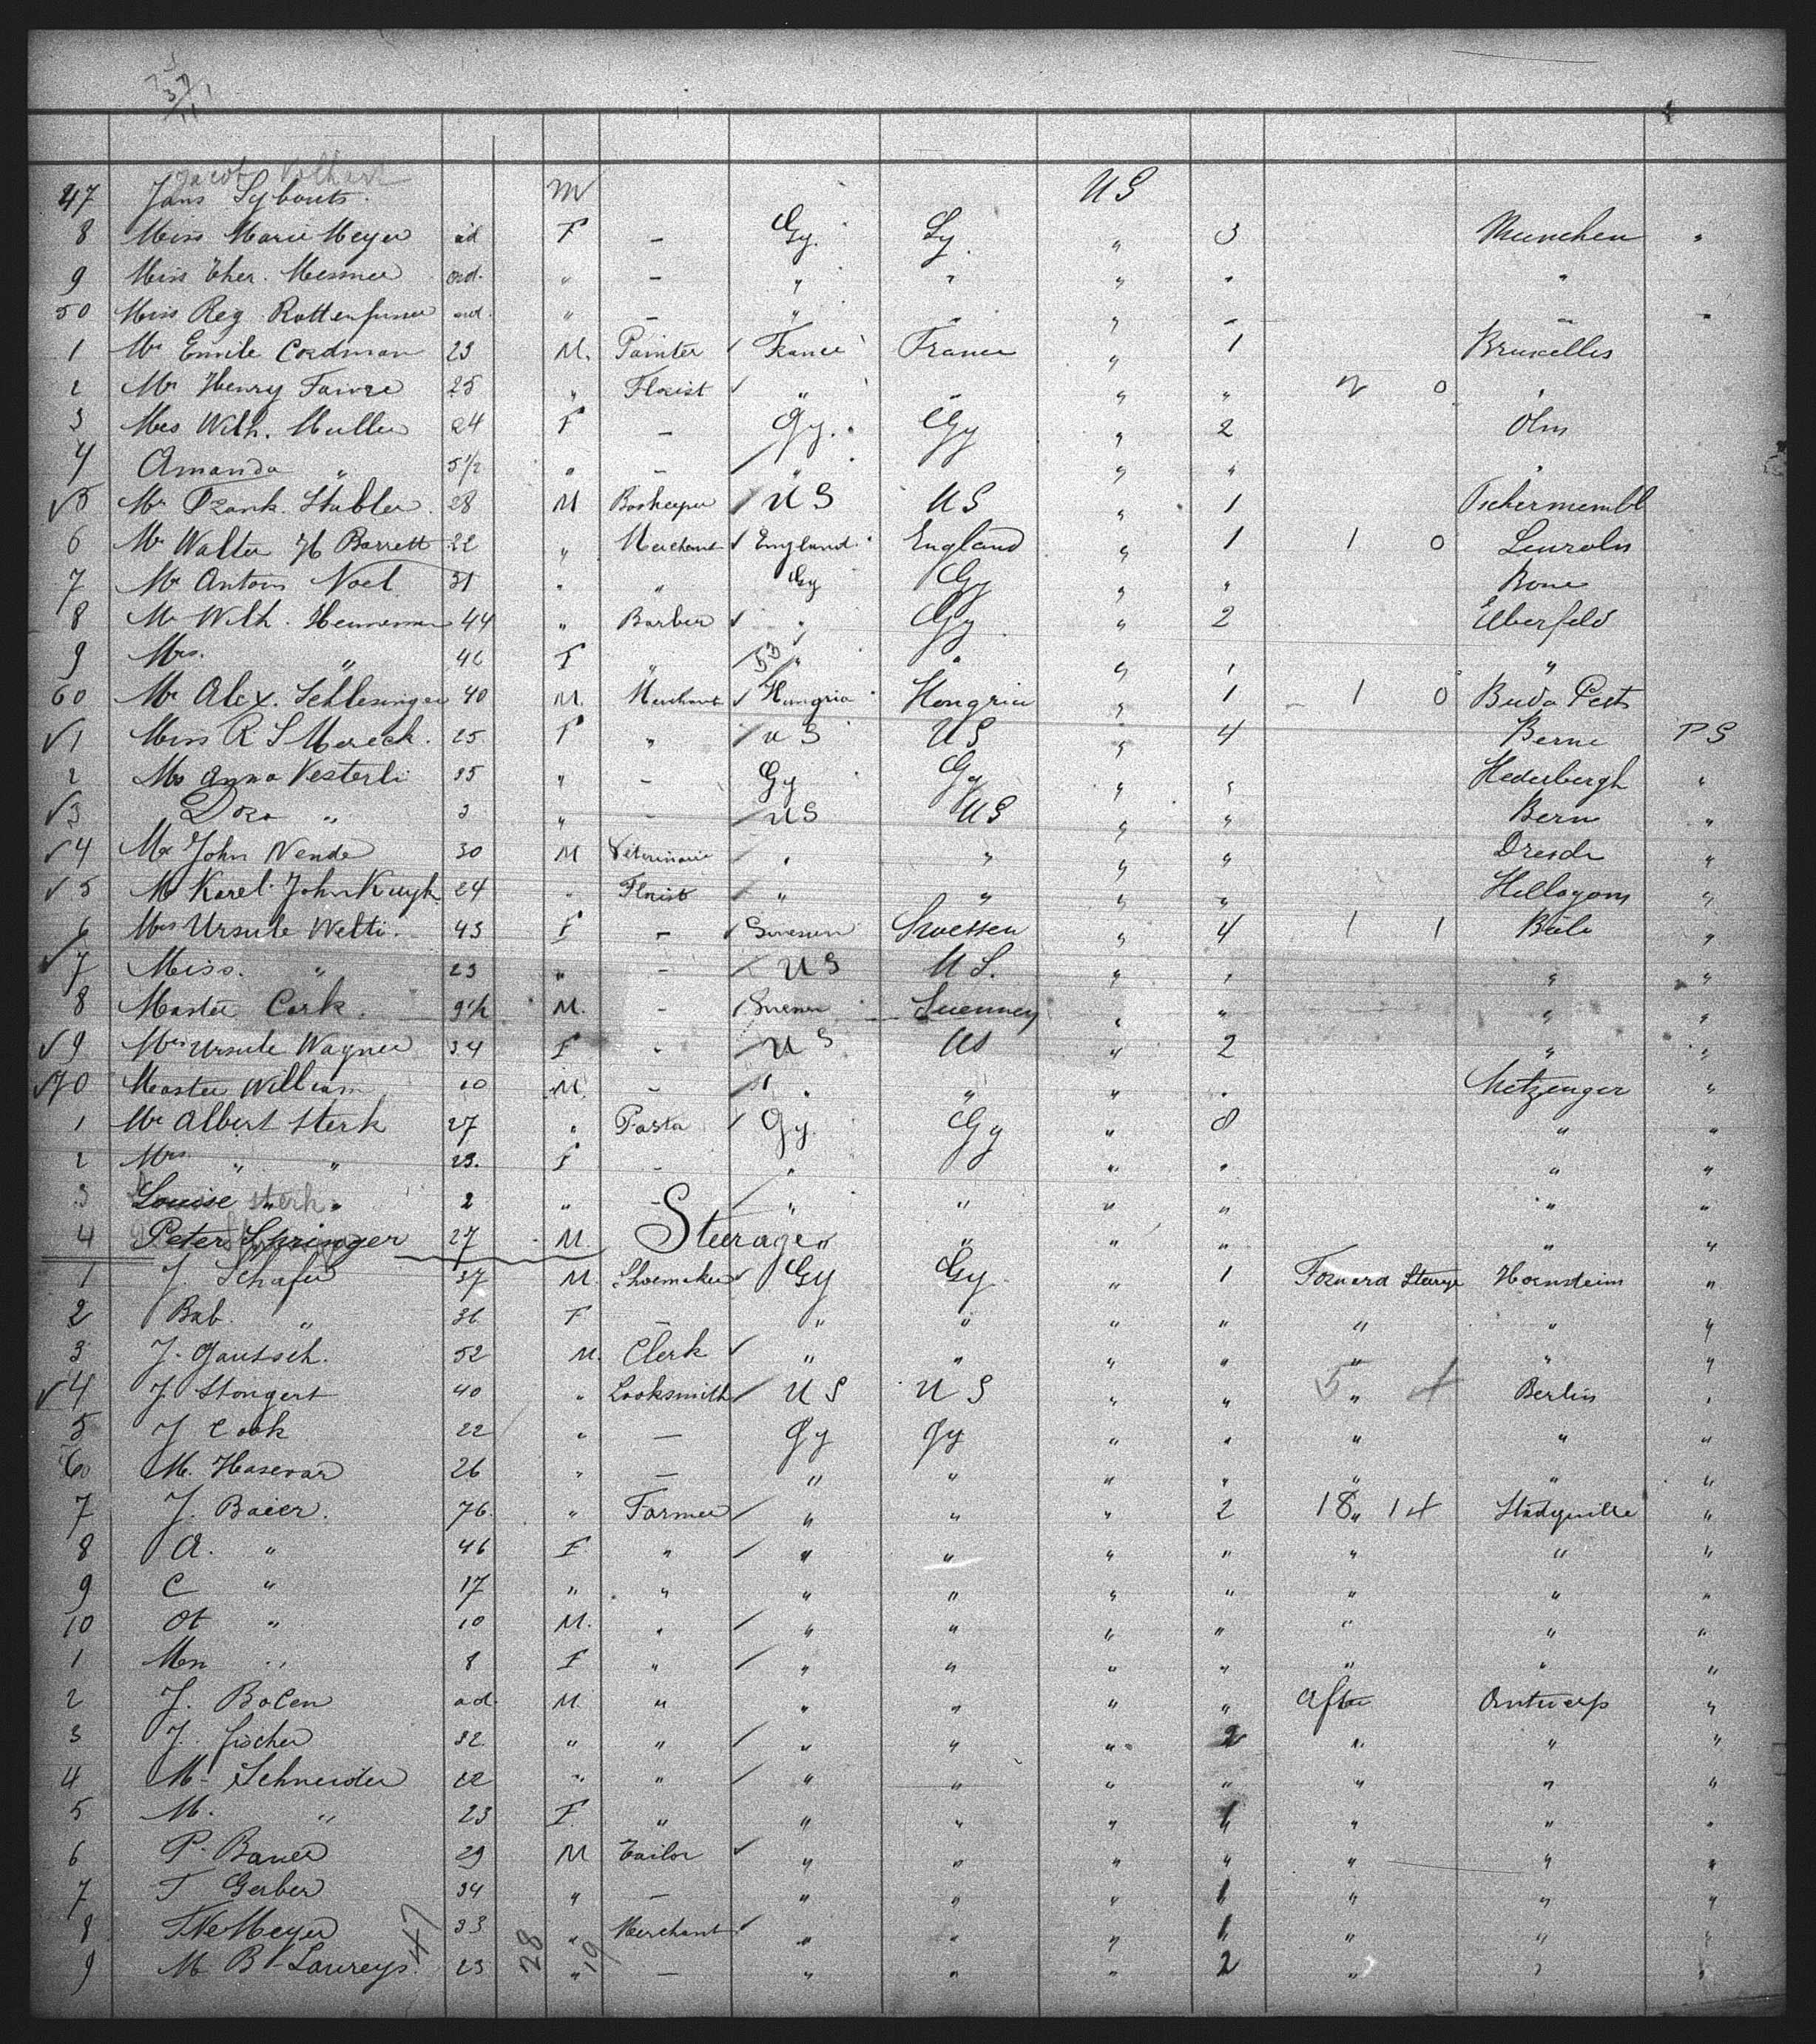 47 Jans Sybouts. M US
8 Miss Marie Meyer ad F — Gy. Gy. " 3 Munchen "
9 Miss Ther. Messmer ad. " — " " " " "
50 Miss Reg. ad. " — " " " " "
1 Mr Emile Cordman 23 M. Painter France France " 1 Bruxelles
2 Mr Henry Faivre 25 " Florist " " " " 2 0 "
3 Mrs Wilh. Muller 24 F — Gy. Gy " 2 Olm
4 Amanda " 5½ " — " " " " "
5 Mr Frank. Stubler 28 M US US " 1 Tschermembl
6 Mr Walter H Barrett 22 " Merchant England England " 1 1 0
7 Mr Antoin Noel 31 " " Gy Gy " "
8 Mr Wilh. 44 " Barber " Gy " 2 Elberfeld
9 Mrs. " F " 53 " " " " "
60 Mr Alex. Schlesinger 40 M. Merchant Hungria Hongria " 1 1 0 Buda Pest
1 Miss R S Mereck. 25 F " US US " 4 Berne PS
2 Mrs Anna Vesterli " — Gy Gy " " "
3 Dora " 3 " — US US " " Bern "
4 Mr John Wende 30 M Veterinair " " " " Dresde "
5 Mr Karel John Kuyk 24 " Florist " " " " "
6 Mrs Ursule Welti. 43 F — " 4 1 1 Bale "
7 Miss. " 23 " — US US. " " " "
8 Master Cark. 9½ M. — " " " "
9 Mrs Ursule Wagner 34 F " US US " 2 " "
70 Master William 10 M. — " " " " Metzenger "
1 Mr Albert Sterk 27 " Pastor Gy. Gy " 8 " "
2 Mrs " " 23. F — " " " " " "
3 Louise Sterk " 2 " — " " " " " "
4 Peter Springer 27 M. " " " " " "
Steerage
1 J. Schafer 37 M. Shoemaker Gy Gy. " 1 Forward Steerge Hornsteim "
2 Bab. " 36 F — " " " " " " "
3 J. Gautsch. 52 M. Clerk " " " " " " "
4 J Stongert 40 " Looksmith US US " " 5 " Berlin "
5 J Cook 22 " — Gy Gy " " " " "
6 M. Hasevar 26 " — " " " " " " "
7 J. Baier. 76. " Farmer " " " 2 18 " 14 "
8 A. " 46 F. " " " " " " " "
9 C " 17 " " " " " " " " "
10 Ot " 10 M. " " " " " " " "
1 Men " 8 F " " " " " " " "
2 J. Bolen ad. M. " " " " " After Antwerp "
3 J. fischer 32. " " " " " 2 " " "
4 M. Schneider 22 " " " " " " " " "
5 M. " 23 F. " " " " 1 " " "
6 P. Bauer 29 M Tailor " " " " " " "
7 F Gerber 34 " — " " " 1 " " "
8 Meyer 33 " Merchant " " " 1 " " "
9 M B Laureys. 23 " — " " " 2 " " "
47 28 19